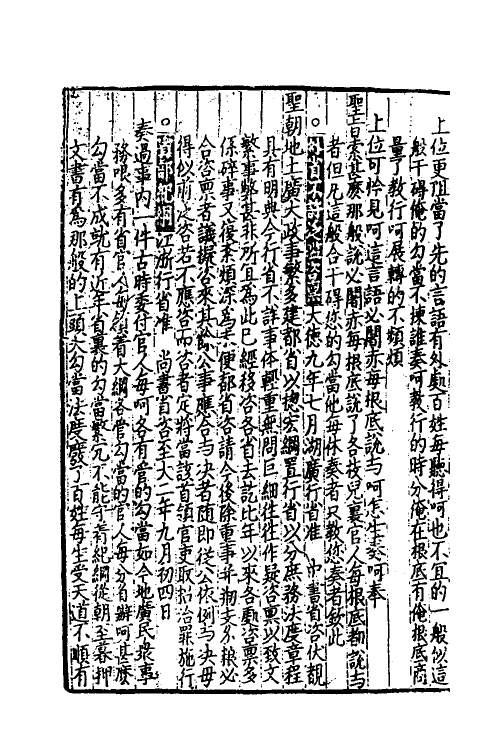 上位更阻當了先的言語有外處百姓每聽得呵也不宜的一般似這
般干碍俺的勾當不揀誰奏呵教行的時分俺在根底有俺根底商
量了教行呵展轉的不頻煩
上位可怜見呵這言語必闍赤每根底說与呵怎生奏呵奉
聖旨索甚麽那般說必闍赤每根底說了各枝兒裏官人每根底都說与
者但凡這般合干碍您的勾當他每休奏者只教您奏者欽此
。外省不許咨稟大德九年七月湖廣行省准 中書省咨伏覩
聖朝地土廣大政事繁多建都省以揔宏綱置行省以分庶務法度章程
具有明典今行省不詳事体輕重無問巨細往往作疑咨稟以致文
繁事弊甚非所宜爲此已經移咨各省去訖比年以來各處咨稟多
係碎事又復紊煩深爲未便都省咨請今後除重事并創支分粮必
合咨稟者議擬咨來其餘公事應合与决者随即從公依例与决毋
得似前泛咨若不應咨而咨者定將當該首領官吏取招治罪施行
。省部紀綱江浙行省准 尚書省咨至大二年九月初四日
奏過事内一件古時委付官人每呵各有管的勾當如今地廣民衆事
務哏多有省官人每着大綱各管勾當的官人每分自辦呵甚麽
勾當不成就有近年省裏的勾當繁冗不能守着紀綱從朝至暮押
文書有爲那般的上頭大勾當法度廢了百姓每生受天道不順有